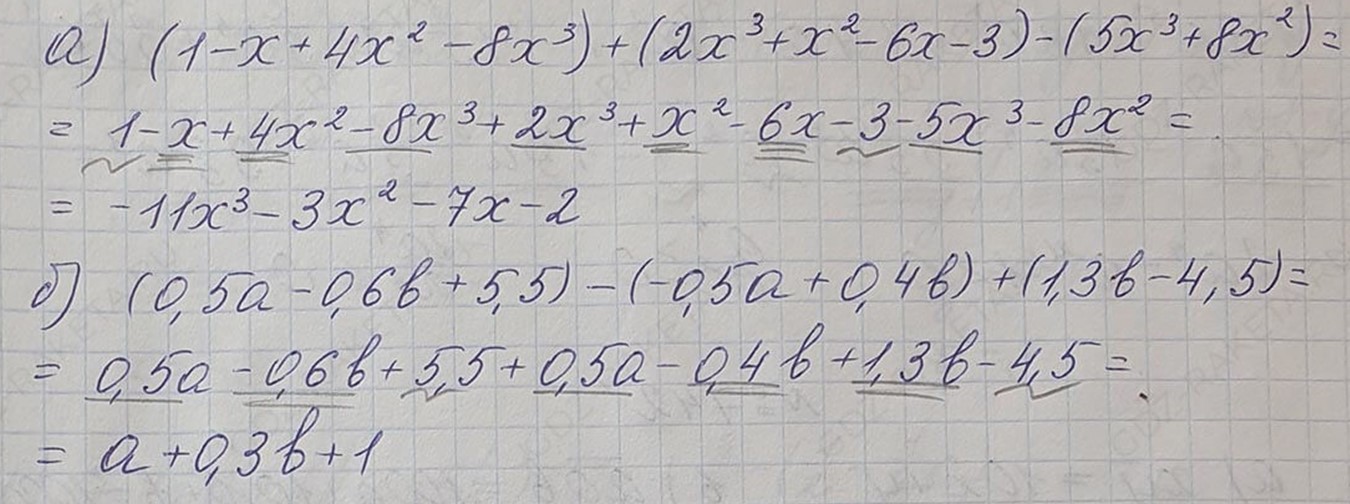 а) (1-x+4x²-8x³)+(2x³+x²-6x-3)-(5x³+8x²)=
= 1-x+4x²-8x³+2x³+x²-6x-3-5x³-8x²=
= -11x³-3x²-7x-2
б) (0,5a-0,6b+5,5)-(-0,5a+0,4b)+(1,3b-4,5)=
= 0,5a-0,6b+5,5+0,5a-0,4b+1,3b-4,5=
= a+0,3b+1